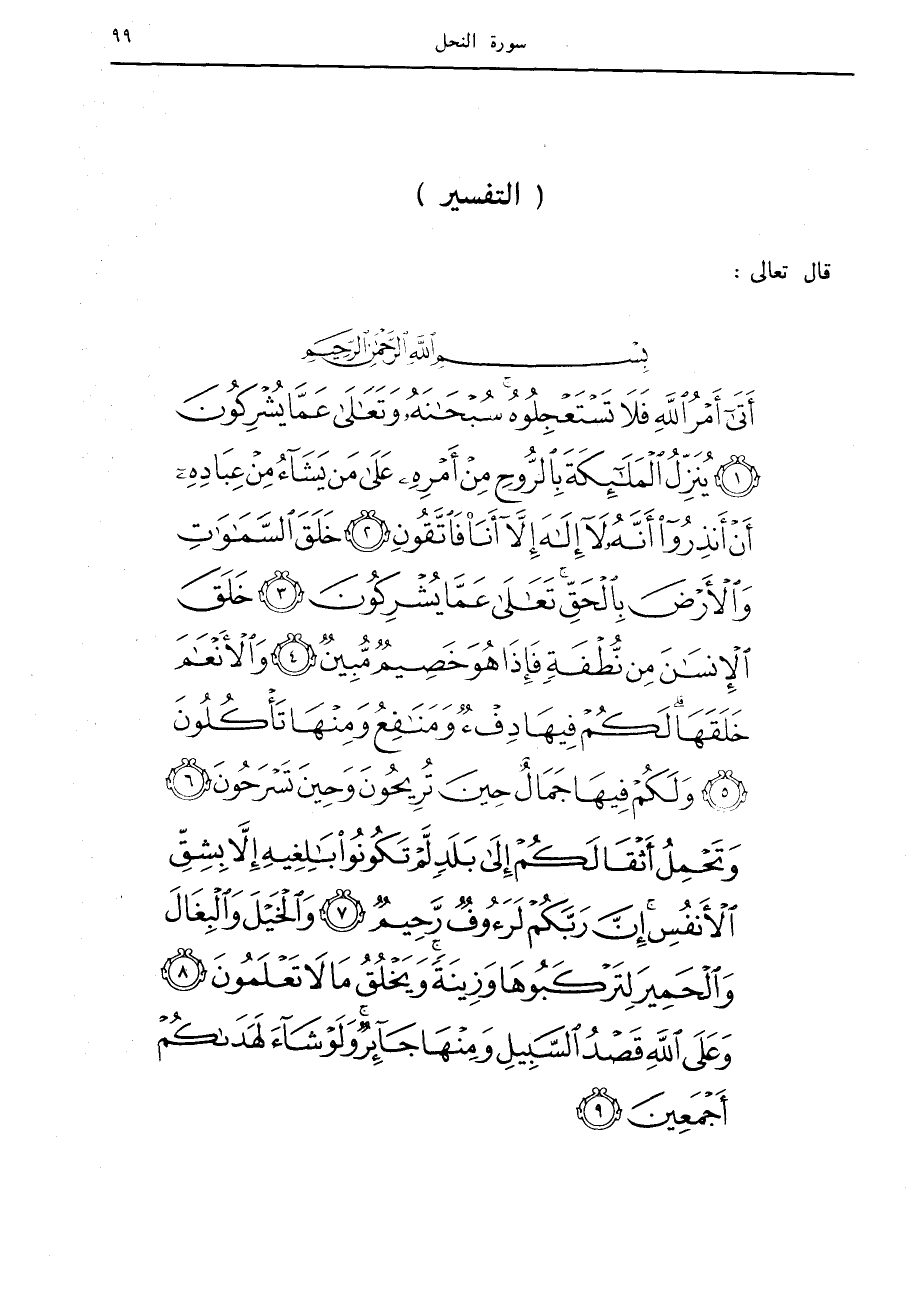 سورة النحل ٩٩
( التفسير )
قال تعالى :
بِسْمِ ٱللَّهِ ٱلرَّحْمَٰنِ ٱلرَّحِيمِ
أَتَىٰٓ أَمْرُ ٱللَّهِ فَلَا تَسْتَعْجِلُوهُ ۚ سُبْحَٰنَهُۥ وَتَعَٰلَىٰ عَمَّا يُشْرِكُونَ
١ يُنَزِّلُ ٱلْمَلَٰٓئِكَةَ بِٱلرُّوحِ مِنْ أَمْرِهِۦ عَلَىٰ مَن يَشَآءُ مِنْ عِبَادِهِۦٓ
أَنْ أَنذِرُوٓا۟ أَنَّهُۥ لَآ إِلَٰهَ إِلَّآ أَنَا۠ فَٱتَّقُونِ ٢ خَلَقَ ٱلسَّمَٰوَٰتِ
وَٱلْأَرْضَ بِٱلْحَقِّ ۚ تَعَٰلَىٰ عَمَّا يُشْرِكُونَ ٣ خَلَقَ
ٱلْإِنسَٰنَ مِن نُّطْفَةٍ فَإِذَا هُوَ خَصِيمٌ مُّبِينٌ ٤ وَٱلْأَنْعَٰمَ
خَلَقَهَا ۗ لَكُمْ فِيهَا دِفْءٌ وَمَنَٰفِعُ وَمِنْهَا تَأْكُلُونَ
٥ وَلَكُمْ فِيهَا جَمَالٌ حِينَ تُرِيحُونَ وَحِينَ تَسْرَحُونَ ٦
وَتَحْمِلُ أَثْقَالَكُمْ إِلَىٰ بَلَدٍ لَّمْ تَكُونُوا۟ بَٰلِغِيهِ إِلَّا بِشِقِّ
ٱلْأَنفُسِ ۚ إِنَّ رَبَّكُمْ لَرَءُوفٌ رَّحِيمٌ ٧ وَٱلْخَيْلَ وَٱلْبِغَالَ
وَٱلْحَمِيرَ لِتَرْكَبُوهَا وَزِينَةً ۚ وَيَخْلُقُ مَا لَا تَعْلَمُونَ ٨
وَعَلَى ٱللَّهِ قَصْدُ ٱلسَّبِيلِ وَمِنْهَا جَآئِرٌ ۚ وَلَوْ شَآءَ لَهَدَىٰكُمْ
أَجْمَعِينَ ٩